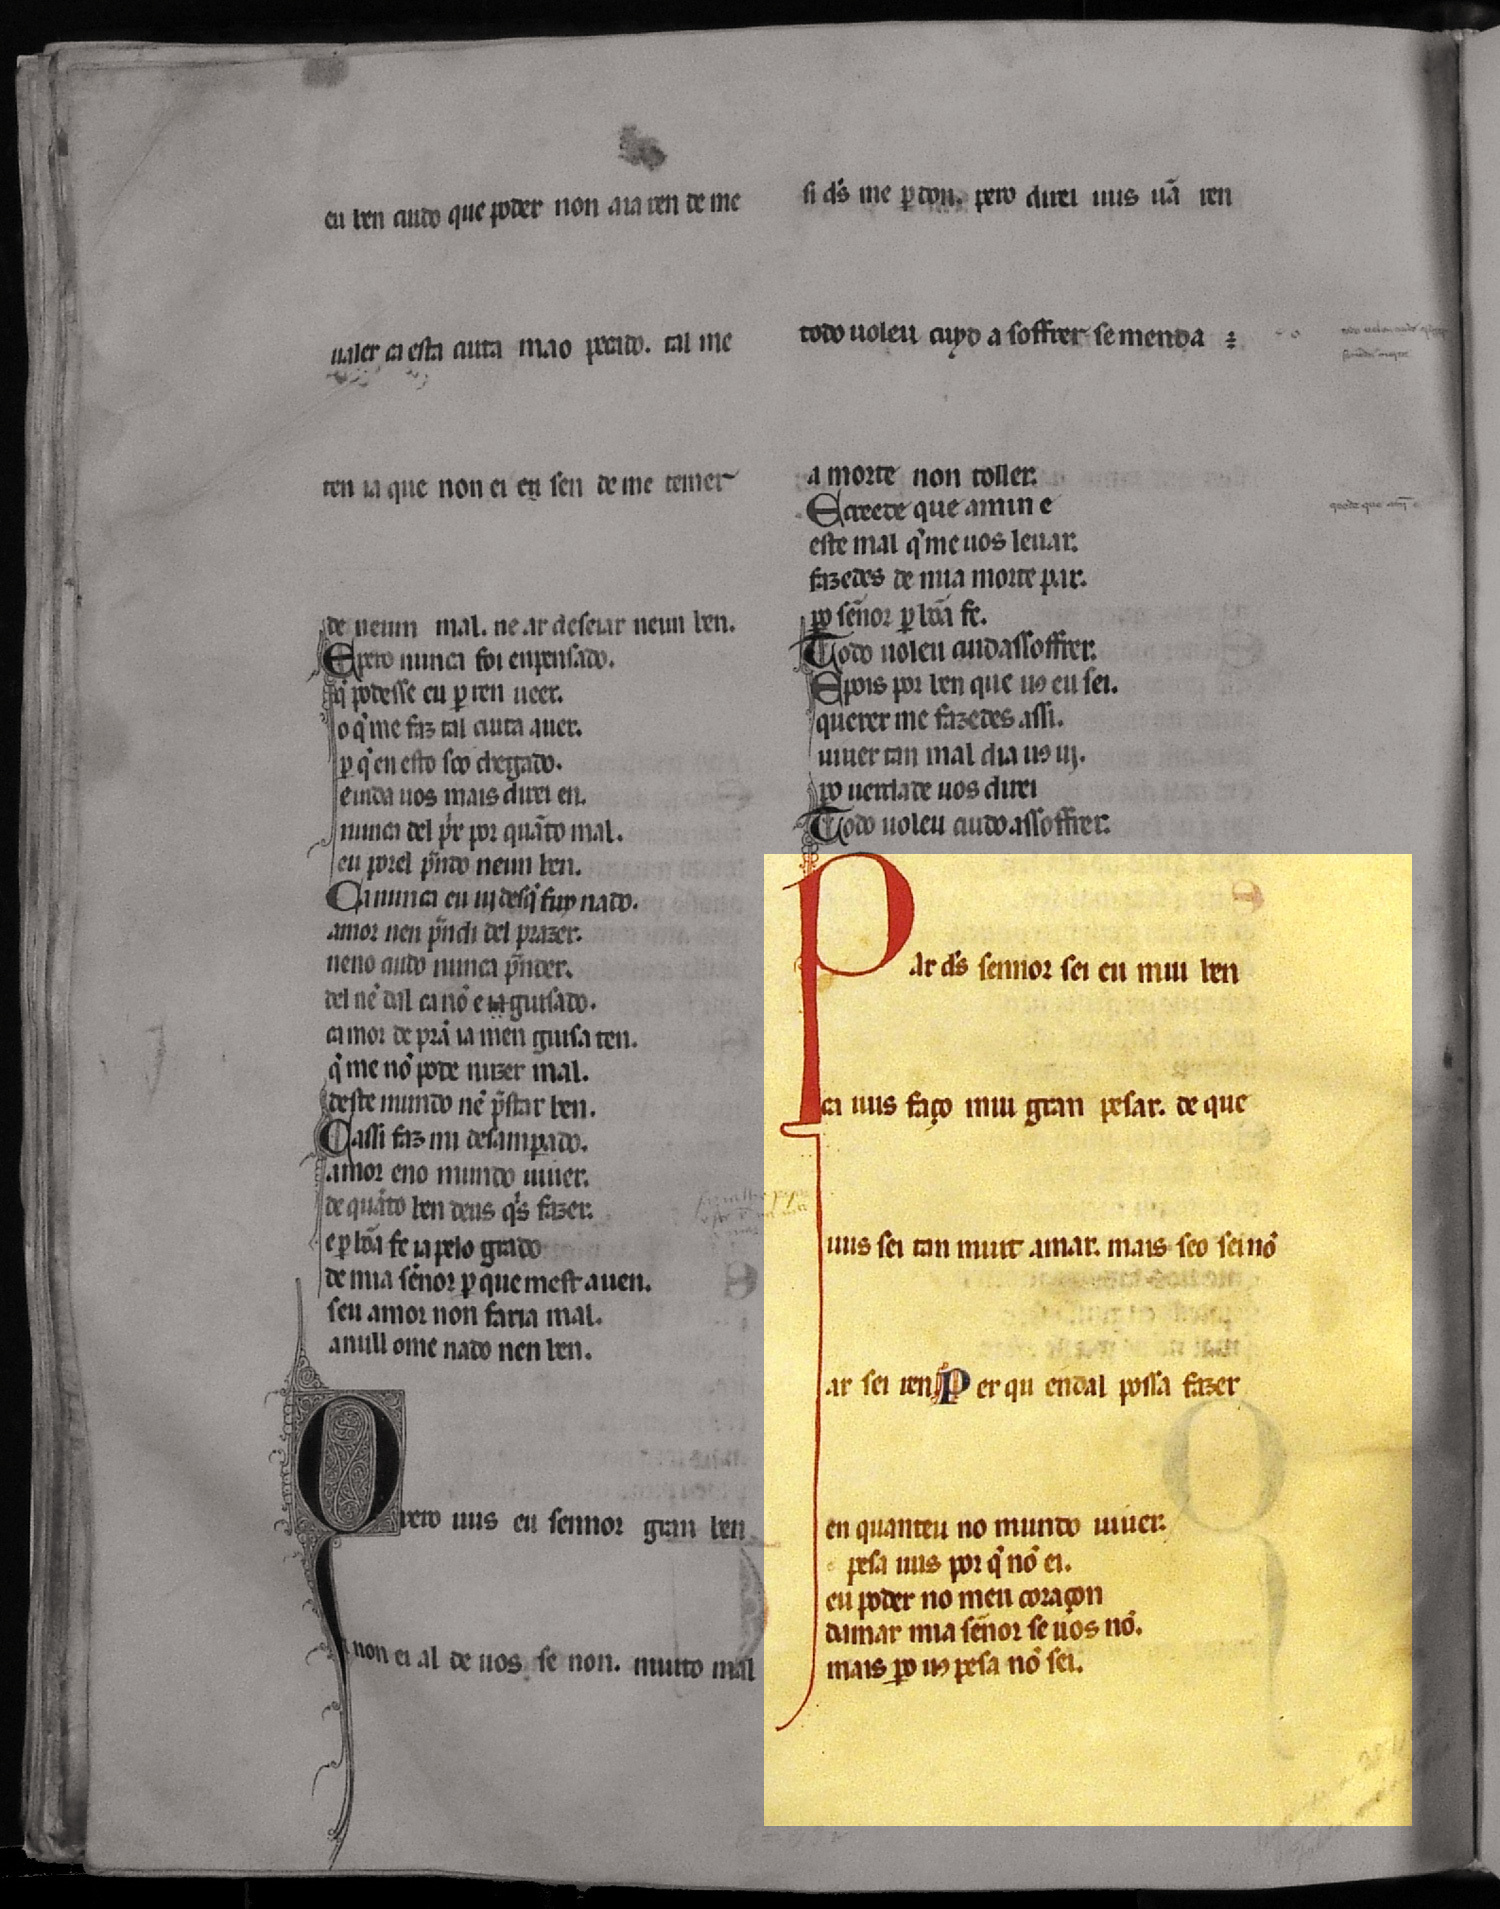 eu ben cuido que poder non aia ren de me
ualer ca esta cuita mao preito. tal me
ten ia que non ei eu sen de me temer
de neun mal. ne ar deseiar neun ben.
E pero nunca foi enpensado.
q̃ podesse eu ꝑ ren ueer.
o q̃ me faz tal cuita auer.
ꝑ q̃ en esto soo chegado.
e inda uos mais direi en.
nunca del p̃r por quãto mal.
eu porel p̃ndo neun ben.
Ca nunca eu uj desq̃ fuy nado.
amor nen p̃ndi del prazer.
neno cuido nunca p̃nder.
del nẽ dal ca nõ e ia guisado.
ca mor de prã ia men guisa ten.
q̃ me nõ pode nuzer mal.
deste mundo nẽ p̃star ben.
Cassi faz mi desamꝑado.
amor eno mundo uiuer.
de quãto ben deus q̃s fazer.
e ꝑ bõa fe ia pelo grado
de mia sẽnor ꝑ que mest auen.
seu amor non faria mal.
a null ome nado nen ben.
Quero uus eu sennor gran ben
non ei al de uos se non. muito mal
si d̃s me ꝑdon. pero direi uus ũa ren
todo uoleu cuyd a soffrer se menda
a morte non toller.
E creede que a min e
este mal q̃ me uos leuar.
fazedes de mia morte par.
ꝑo sẽnor ꝑ bõa fe.
Todo uoleu cuidassoffrer.
E pois por ben que uꝯ eu sei.
querer me fazedes assi.
uiuer tan mal dia uꝯ uj.
ꝑo uerdade uos direi
Todo uoleu cuido assoffrer.
Par d̃s sennor sei eu mui ben
ca uus faço mui gran pesar. de que
uus sei tan muit amar. mais seo sei nõ
ar sei ren Per qu endal possa fazer
en quanteu no mundo uiuer.
pesa uus por q̃ nõ ei.
eu poder no meu coraçon
damar mia sẽnor se uos nõ.
mais ꝑo uꝯ pesa nõ sei.